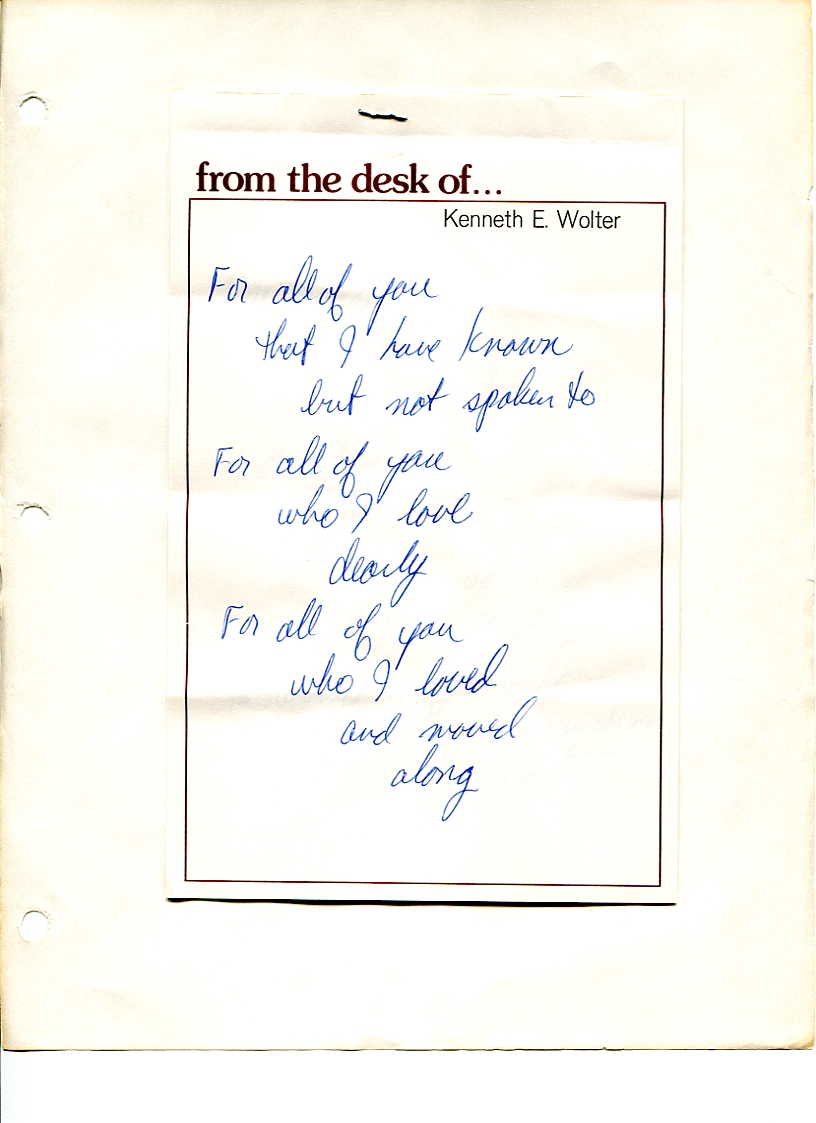 from the desk of...
Kenneth E. Wolter
For all of you
that I have known
but not spoken to
For all of you
who I love
dearly
For all of you
who I loved
and moved
along